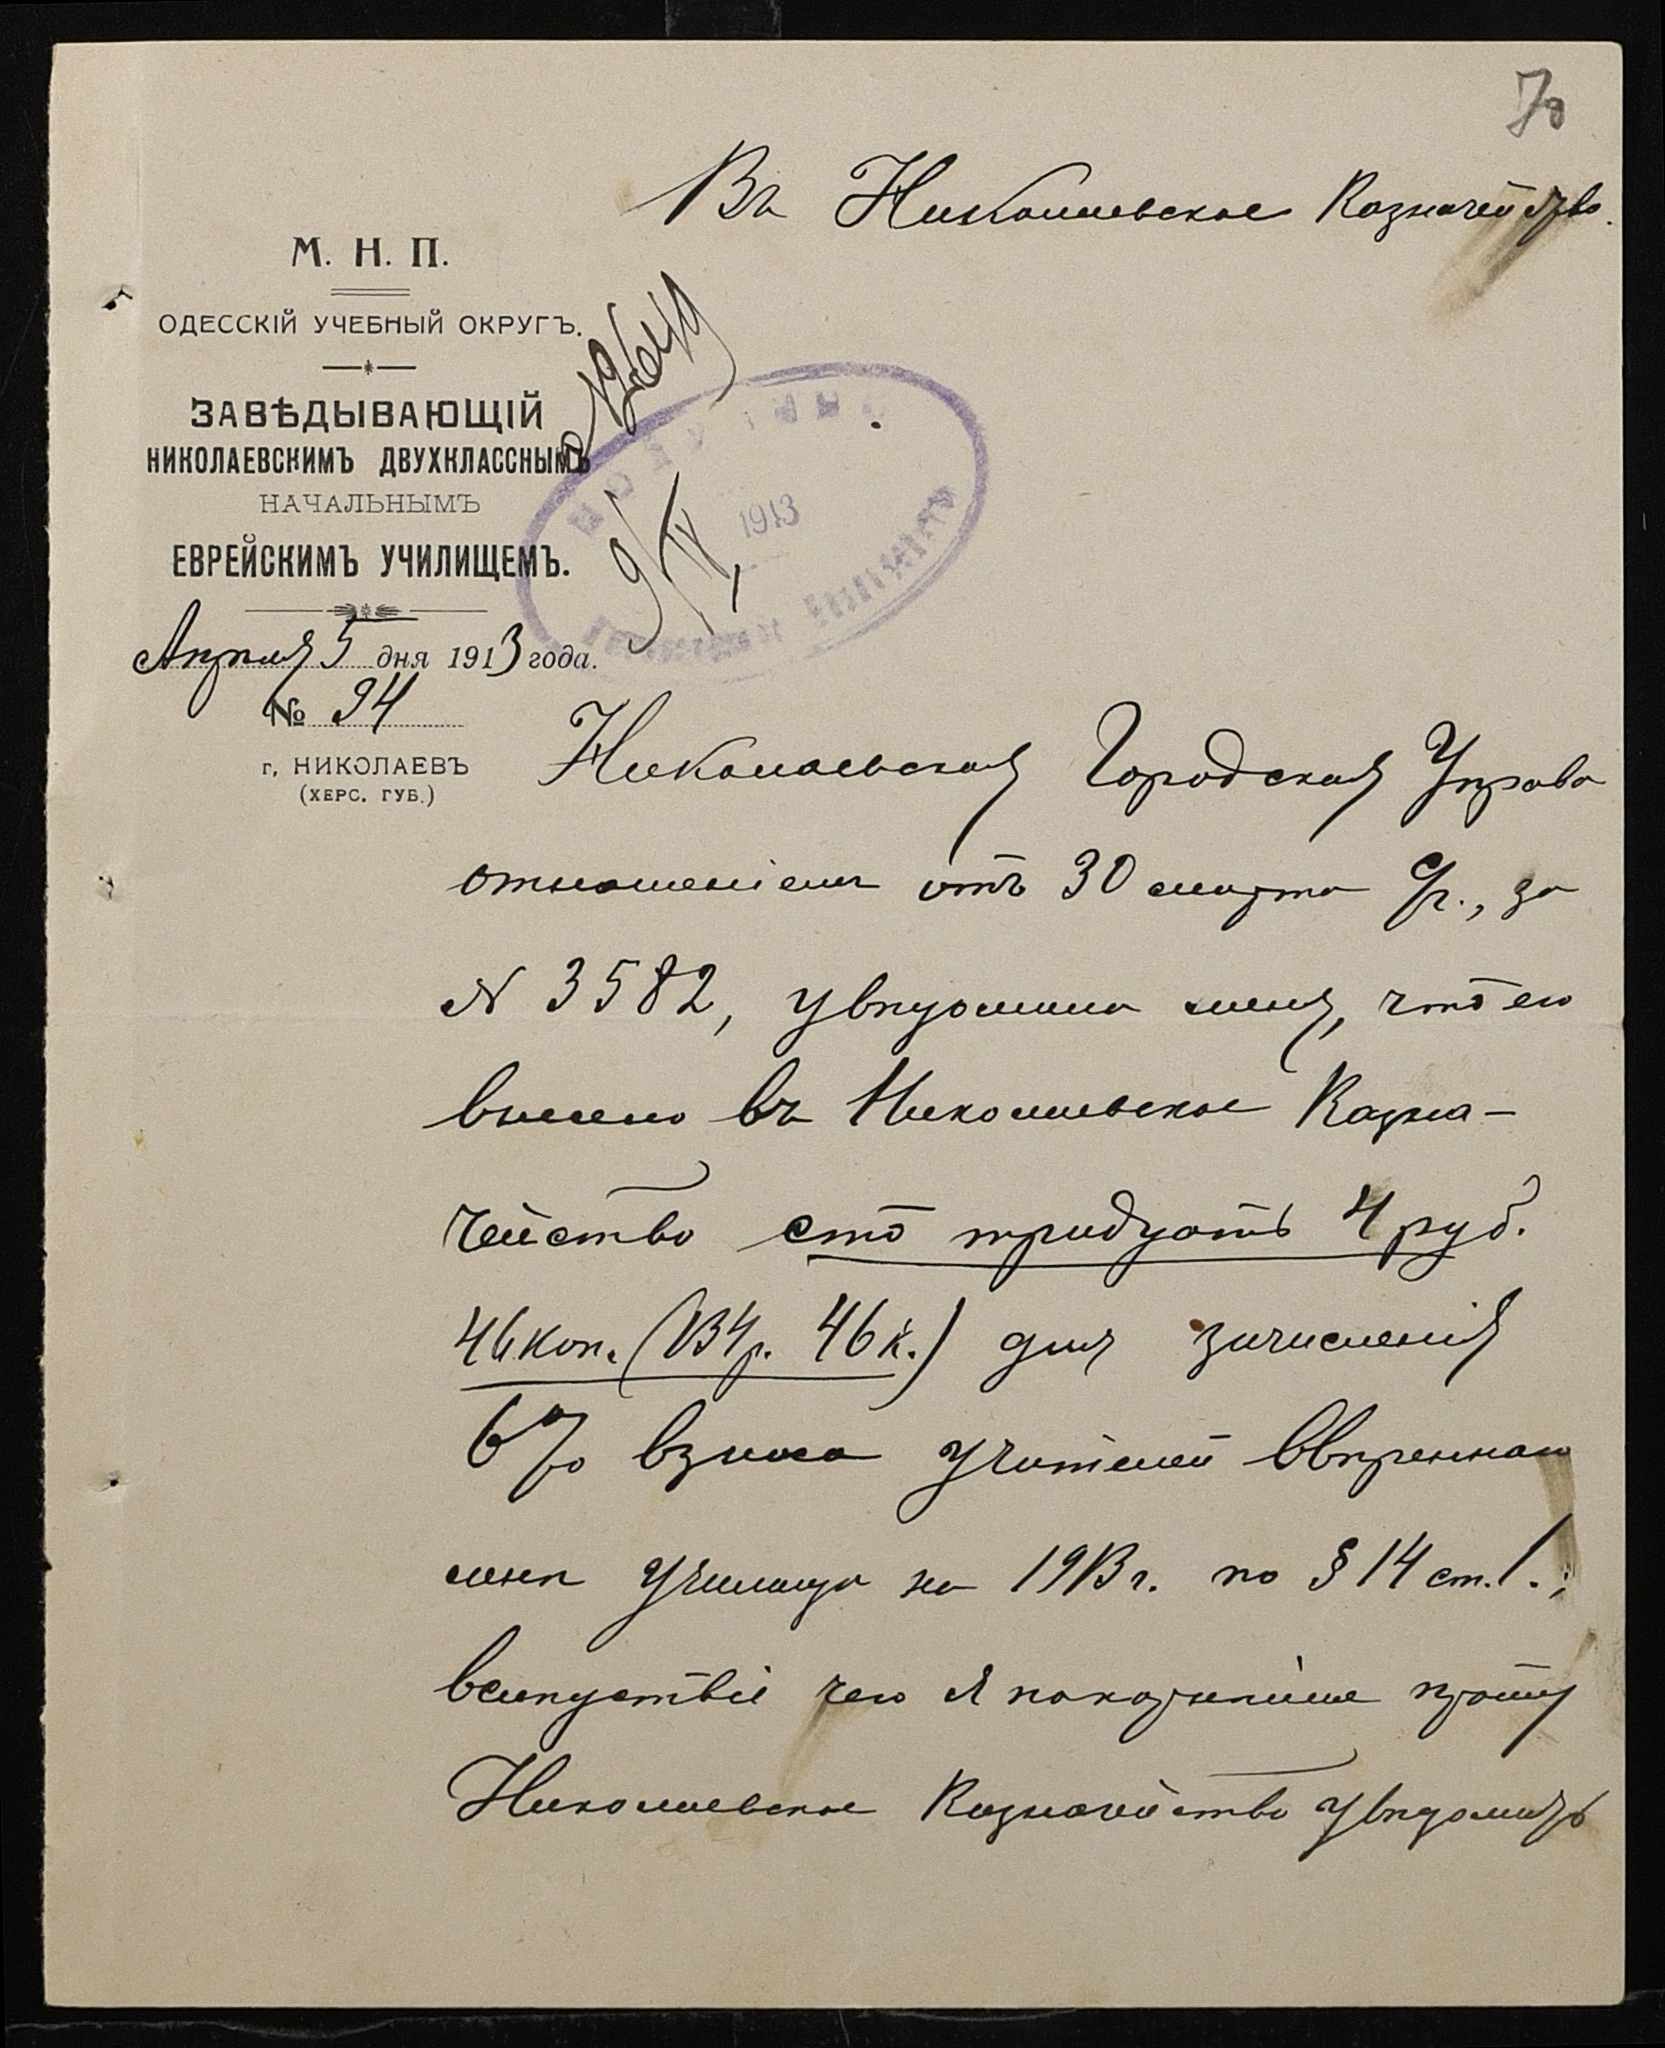 70
Въ Николаевское Казначейство.
М. Н. П.
ОДЕССКІЙ УЧЕБНЫЙ ОКРУГЪ.
ЗАВѢДЫВАЮЩІЙ
НИКОЛАЕВСКИМЪ ДВУХКЛАССНЫМЪ
НАЧАЛЬНЫМЪ
ЕВРЕЙСКИМЪ УЧИЛИЩЕМЪ.
9/IV
1913
Апрѣля 5 дня 1913 года.
№ 94
г. НИКОЛАЕВЪ
(ХЕРС. ГУБ.)
Николаевская Городская Управа
отношеніемъ отъ 30 марта с/г., за
№ 3582, увѣдомила меня, что ею
внесено въ Николаевское Казна-
чейство сто тридцать 4 руб.
46 коп. (134 р. 46 к.) для зачисленія
6% взноса учителей ввѣреннаго
мнѣ училища на 1913 г. по § 14 ст. 1.;
вслѣдствіе чего я покорнѣйше прошу
Николаевское Казначейство увѣдомить